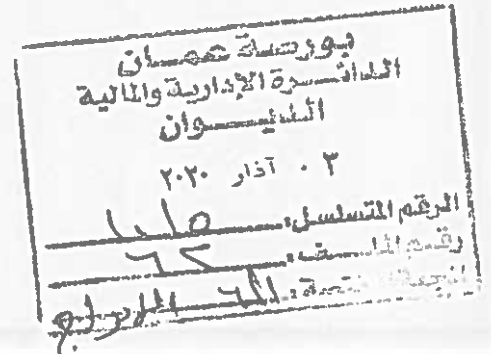 بورصة عمان
الدائرة الإدارية والمالية
الديوان
٠ ٣ آذار ٢٠٢٠
الرقم المتسلسل:
رقم الملف: ٦٢
الجهة المختصة: